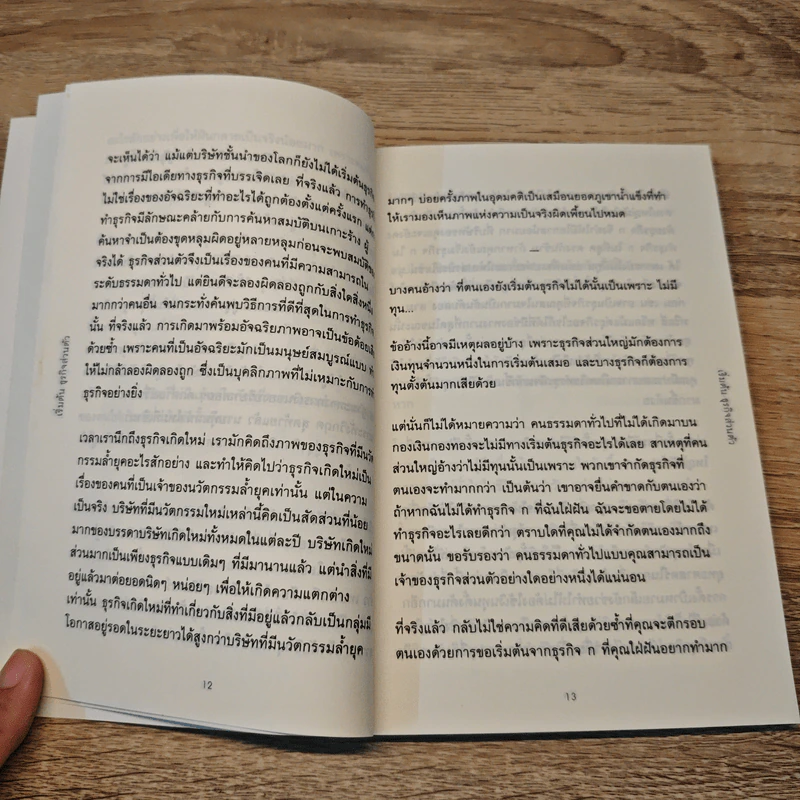 จะเห็นได้ว่า แม้แต่บริษัทชั้นนำของโลกก็ยังไม่ได้เริ่มต้นธุรกิจ
จากการมีไอเดียทางธุรกิจที่บรรเจิดเลย ที่จริงแล้ว การทำธุรกิจ
ไม่ใช่เรื่องของอัจฉริยะที่ทำอะไรได้ถูกต้องตั้งแต่ครั้งแรก
ทำธุรกิจมีลักษณะคล้ายกับการค้นหาสมบัติบนเกาะร้าง ผู้
ค้นหาจำเป็นต้องขุดหลุมผิดอยู่หลายหลุมก่อนจะพบสมบัติ
จริงได้ ธุรกิจส่วนตัวจึงเป็นเรื่องของคนที่มีความสามารถใน
ระดับธรรมดาทั่วไป แต่ยินดีจะลองผิดลองถูกกับสิ่งใดสิ่งหนึ่ง
มากกว่าคนอื่น จนกระทั่งค้นพบวิธีการที่ดีที่สุดในการทำธุรกิจ
นั้น ที่จริงแล้ว การเกิดมาพร้อมอัจฉริยภาพอาจเป็นข้อด้อย
ด้วยซ้ำ เพราะคนที่เป็นอัจฉริยะมักเป็นมนุษย์สมบูรณ์แบบ
ให้ไม่กล้าลองผิดลองถูก ซึ่งเป็นบุคลิกภาพที่ไม่เหมาะกับการ
ธุรกิจอย่างยิ่ง
เวลาเรานึกถึงธุรกิจเกิดใหม่ เรามักคิดถึงภาพของธุรกิจที่มีนวัต
กรรมล้ำยุคอะไรสักอย่าง และทำให้คิดไปว่าธุรกิจเกิดใหม่เป็น
เรื่องของคนที่เป็นเจ้าของนวัตกรรมล้ำยุคเท่านั้น แต่ในความ
เป็นจริง บริษัทที่มีนวัตกรรมใหม่เหล่านี้คิดเป็นสัดส่วนที่น้อย
มากของบรรดาบริษัทเกิดใหม่ทั้งหมดในแต่ละปี บริษัทเกิดใหม่
ส่วนมากเป็นเพียงธุรกิจแบบเดิมๆ ที่มีมานานแล้ว แต่นำสิ่งที่มี
อยู่แล้วมาต่อยอดนิดๆ หน่อยๆ เพื่อให้เกิดความแตกต่าง
เท่านั้น ธุรกิจเกิดใหม่ที่ทำเกี่ยวกับสิ่งที่มีอยู่แล้วกลับเป็นกลุ่มมี
โอกาสอยู่รอดในระยะยาวได้สูงกว่าบริษัทที่มีนวัตกรรมล้ำยุค
12
เริ่มต้น ธุรกิจส่วนตัว
มากๆ บ่อยครั้งภาพในอุดมคติเป็นเสมือนยอดภูเขาน้ำแข็งที่ทำ
ให้เรามองเห็นภาพแห่งความเป็นจริงผิดเพี้ยนไปหมด
—
บางคนอ้างว่า ที่ตนเองยังเริ่มต้นธุรกิจไม่ได้นั้นเป็นเพราะ ไม่มี
ทุน...
ข้ออ้างนี้อาจมีเหตุผลอยู่บ้าง เพราะธุรกิจส่วนใหญ่มักต้องการ
เงินทุนจำนวนหนึ่งในการเริ่มต้นเสมอ และบางธุรกิจก็ต้องการ
ทุนตั้งต้นมากเสียด้วย
แต่นั่นก็ไม่ได้หมายความว่า คนธรรมดาทั่วไปที่ไม่ได้เกิดมาบน
กองเงินกองทองจะไม่มีทางเริ่มต้นธุรกิจอะไรได้เลย สาเหตุที่คน
ส่วนใหญ่อ้างว่าไม่มีทุนนั้นเป็นเพราะ พวกเขาจำกัดธุรกิจที่
ตนเองจะทำมากกว่า เป็นต้นว่า เขาอาจยื่นคำขาดกับตนเองว่า
ถ้าหากฉันไม่ได้ทำธุรกิจ ก ที่ฉันใฝ่ฝัน ฉันจะขอตายโดยไม่ได้
ทำธุรกิจอะไรเลยดีกว่า ตราบใดที่คุณไม่ได้จำกัดตนเองมากถึง
ขนาดนั้น ขอรับรองว่า คนธรรมดาทั่วไปแบบคุณสามารถเป็น
เจ้าของธุรกิจส่วนตัวอย่างใดอย่างหนึ่งได้แน่นอน
ที่จริงแล้ว กลับไม่ใช่ความคิดที่ดีเสียด้วยซ้ำที่คุณจะตีกรอบ
ตนเองด้วยการขอเริ่มต้นจากธุรกิจ ก ที่คุณใฝ่ฝันอยากทำมาก
13
เริ่มต้น ธุรกิจส่วนตัว